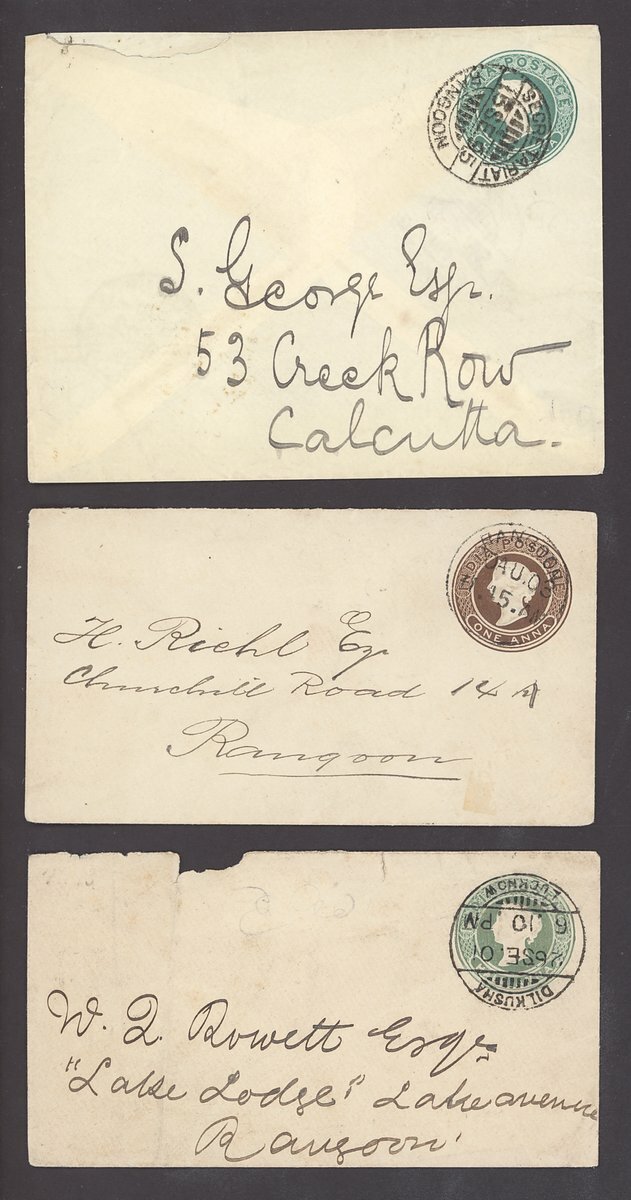 POSTAGE
SECRETARIAT
RANGOON
S. George Esq.
53 Creek Row
Calcutta.
INDIA POSTAGE
ONE ANNA
RANGOON
H. Riehl Esq
Churchill Road 14 A
Rangoon
LUCKNOW
6.10 PM
26SE.01
DILKUSHA
W. Q. Rowett Esqre
"Lake Lodge" Lake avenue
Rangoon